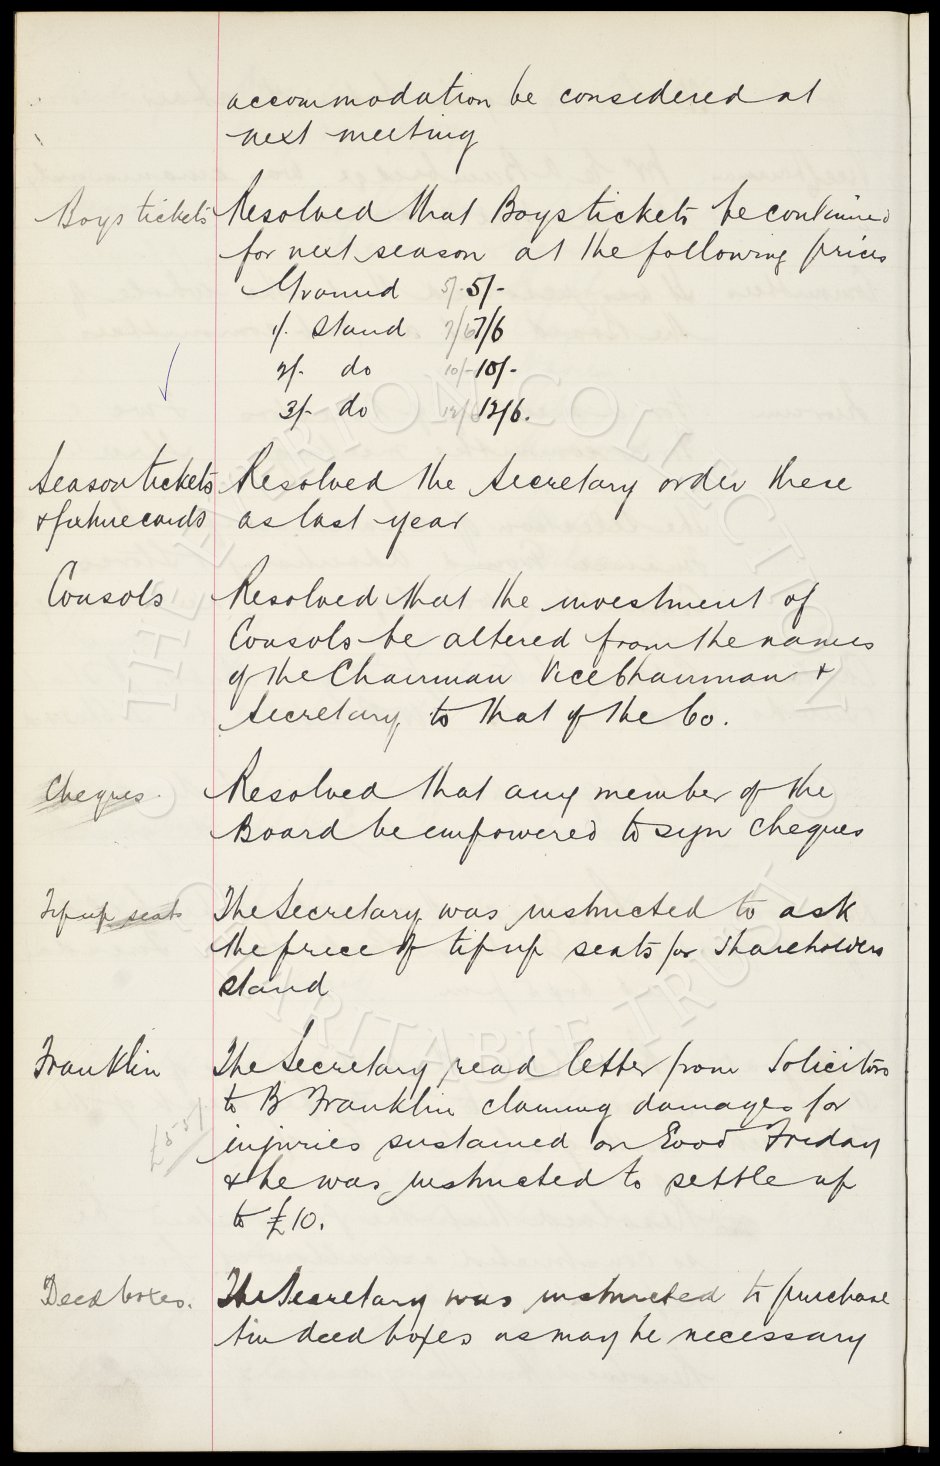 accommodation be considered at
next meeting
Boys tickets Resolved that Boys tickets be continued
for next season at the following prices
Ground 5/- 5/-
1/- Stand 7/6 7/6
2/- do 10/- 10/-
3/- do 12/6 12/6.
Season tickets Resolved the Secretary order these
& fixture cards as last year
Consols Resolved that the investment of
Consols be altered from the names
of the Chairman Vice Chairman &
Secretary to that of the Co.
Cheques. Resolved that any member of the
Board be empowered to sign cheques
Tip up seats The Secretary was instructed to ask
the price of tip up seats for Shareholders
stand
Franklin The Secretary read letter from Solicitors
to B Franklin claiming damages for
injuries sustained on Good Friday
& he was instructed to settle up
to £10.
Deed boxes. The Secretary was instructed to purchase
tin deed boxes as may be necessary
THE EVERTON COLLECTION
CHARITABLE TRUST